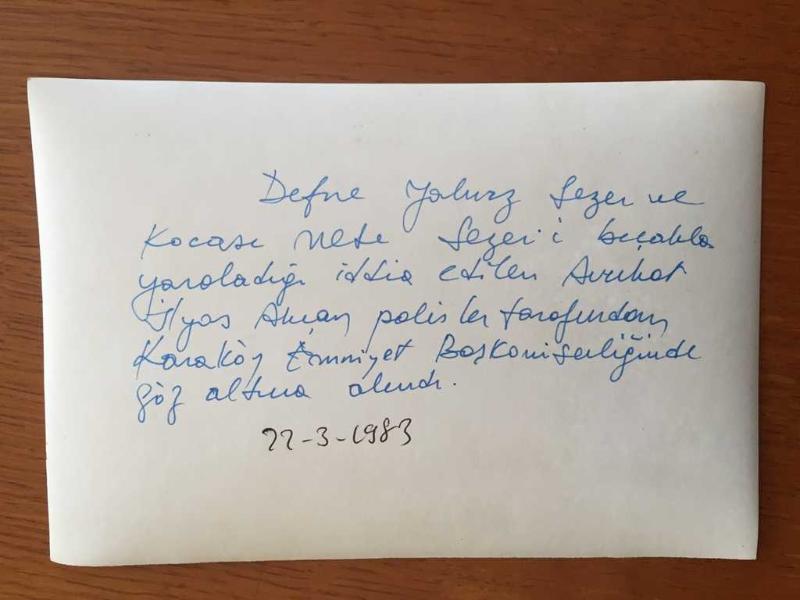 Defne Yalnız Sezer ve
Kocası Mete Sezer'i bıçakla
yaraladığı iddia edilen Avukat
İlyas polisler tarafından
Karaköy Emniyet Başkomiserliğinde
göz altına alındı.
22-3-1983